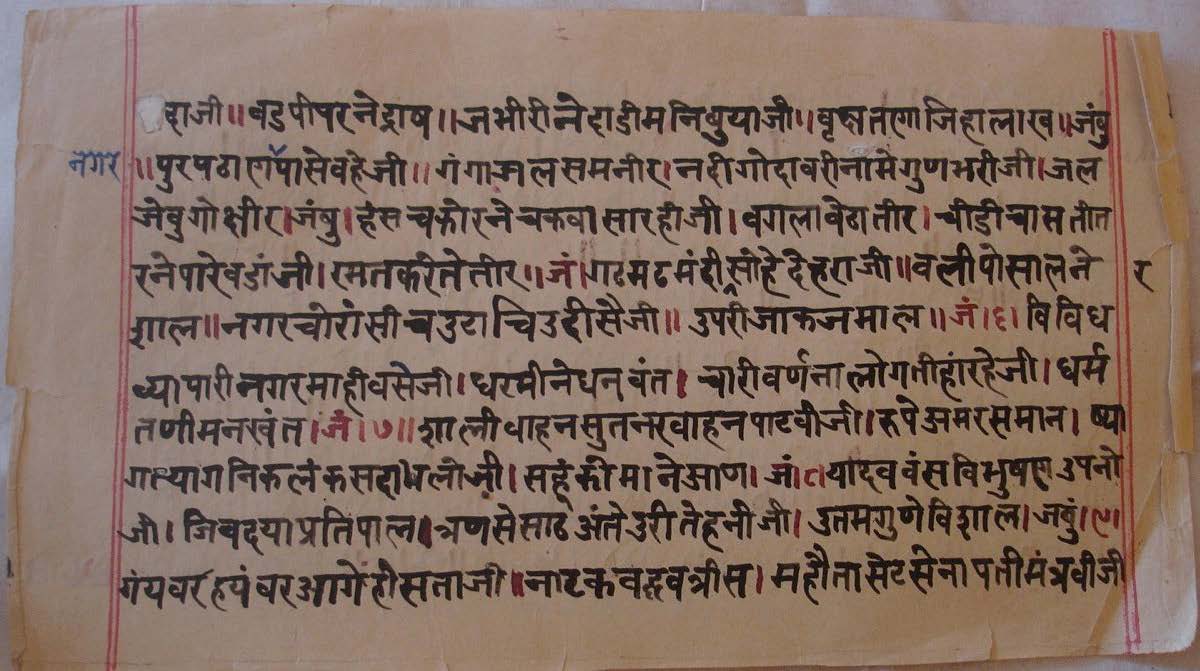 दाजी॥ वडपीपरनेद्राष॥ जभीरीनेदाडीमनिबुयाजी॥ वृक्षतणा जिहालाख॥ जंबु
नगर ॥ पुरपठाणपासेवहेजी॥ गंगाजलसमनीर। नदीगोदावरीनामेगुणभरीजी। जल
जेवुगोक्षीर। जंबु। हंसचकोरनेचकवासारहीजी। वगलावेठातीर। चीडीचासतीत
रनेपारेवडांजी। रमतकरितेतीर॥ जं। गढमढमंदीरसोहेदेहराजी॥ वलीपोसालने
शाल॥ नगरचोरासीचउटाचिउदीसैजी॥ उपरीजाकजमाल॥ जं।६। विविध
व्यापारीनगरमाहीवसेजी। धरमीनेधनवंत। चारीवर्णनालोगतीहांरहेजी। धर्म
तणीमनखंत। जं।७॥ शालीवाहनसुतनरवाहनपाटवीजी। रुपेअमरसमान। ष्या
गत्यागनिकलंकसदाभलोजी। सहूकोमानेआण। जं।८ यादववंसविभुषणउपनो
जी। जिवदयाप्रतिपाल। त्रणसेसाठअंतेउरीतेहनीजी। उतमगुणेविशाल। जंबु।९।
गंयवरहयंवरआगेहीसताजी॥ नाटकवद्धवत्रीस। महौतासेटसेनापतीमंत्रवीजी